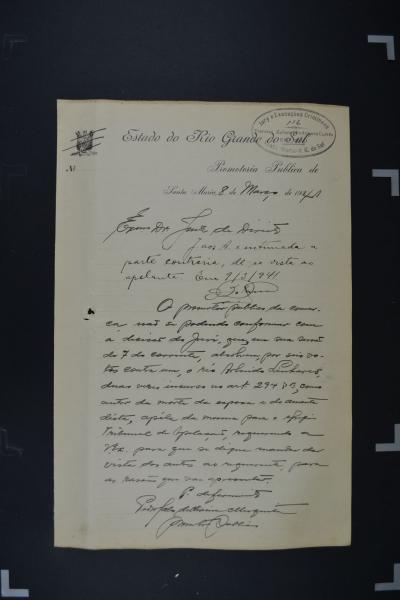 Jury e Execuções Criminaes
116
Estado do Rio Grande do Sul
Promotoria Publica de
Nº
Santa Maria, 8 de Março de 1941
Exmo Dr. Juiz de Direito
J. aos A. e intimada a
parte contraria, dê-se vista ao
apelante. Em 9/3/941
O promotor publico da comar-
ca, não se podendo conformar com
a decisão do Juri, que, em sua sessão
de 7 do corrente, absolveu, por seis vo-
tos contra um, o réu
duas vezes incurso no art 294 como
autor da morte da esposa e do amante
desta, apéla da mesma para o
Tribunal de Apelação, requerendo a
V. Ex. para que se digne mandar dar
vista dos autos ao requerente, para
as razões que vai apresentar.
P. deferimento
Promotor Publico